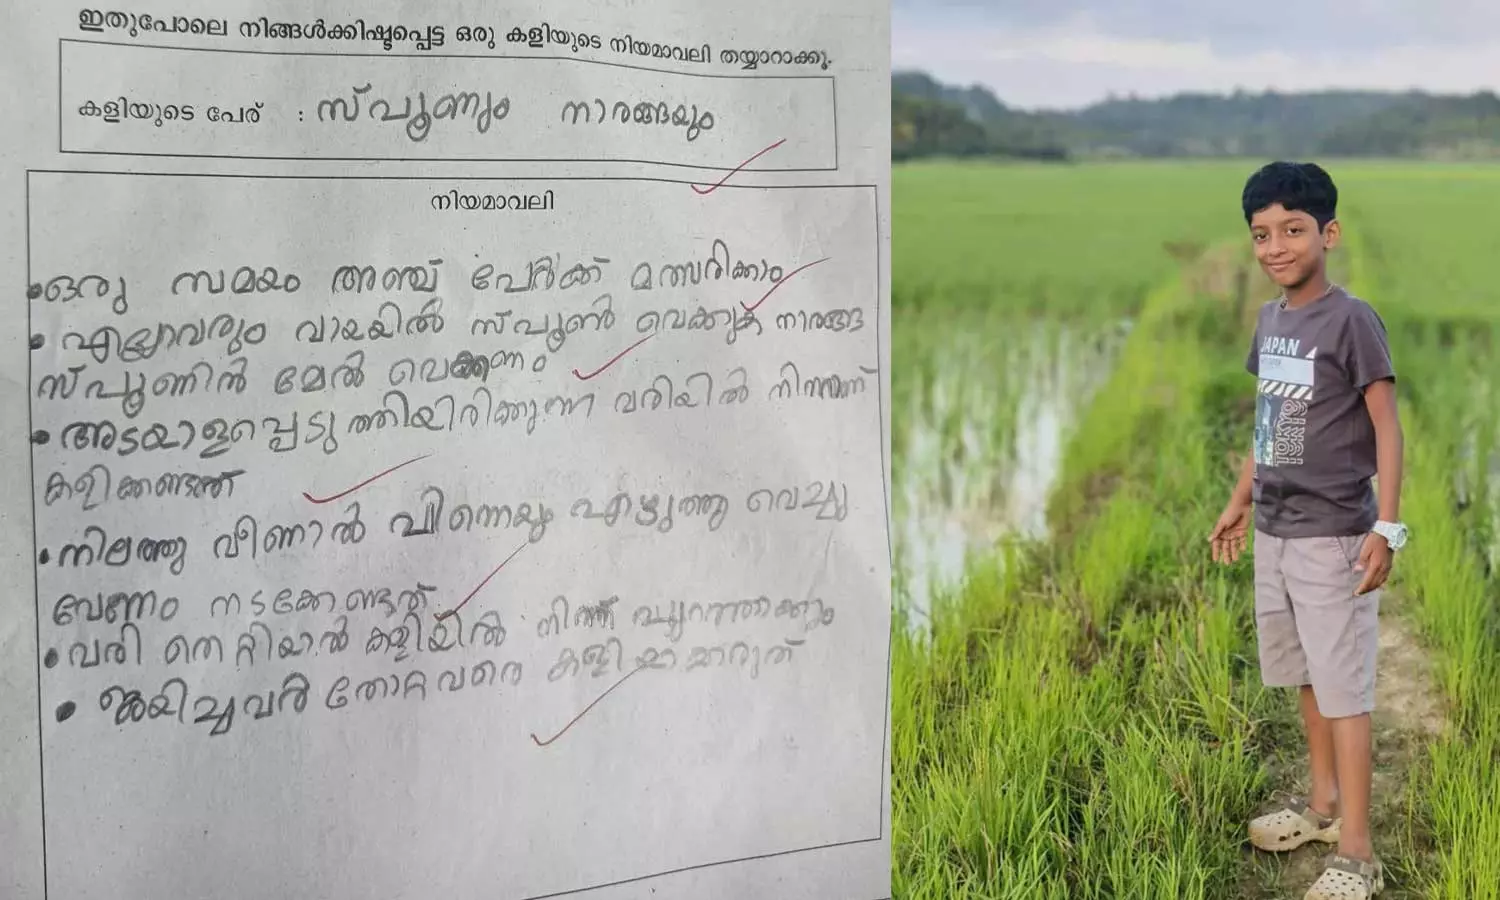 ഇതുപോലെ നിങ്ങൾക്കിഷ്ടപ്പെട്ട ഒരു കളിയുടെ നിയമാവലി തയ്യാറാക്കൂ.
കളിയുടെ പേര് : സ്പൂണും നാരങ്ങയും
നിയമാവലി
• ഒരു സമയം അഞ്ച് പേർക്ക് മത്സരിക്കാം
• എല്ലാവരും വായയിൽ സ്പൂൺ വെക്കുക നാരങ്ങ
സ്പൂണിൻ മേൽ വെക്കണം
• അടയാളപ്പെടുത്തിയിരിക്കുന്ന വരിയിൽ നിന്നാണ്
കളിക്കേണ്ടത്
• നിലത്തു വീണാൽ പിന്നെയും എടുത്തു വെച്ചു
വേണം നടക്കേണ്ടത്
• വരി തെറ്റിയാൽ കളിയിൽ നിന്ന് പുറത്താക്കും
• ജയിച്ചവർ തോറ്റവരെ കളിയാക്കരുത്
JAPAN